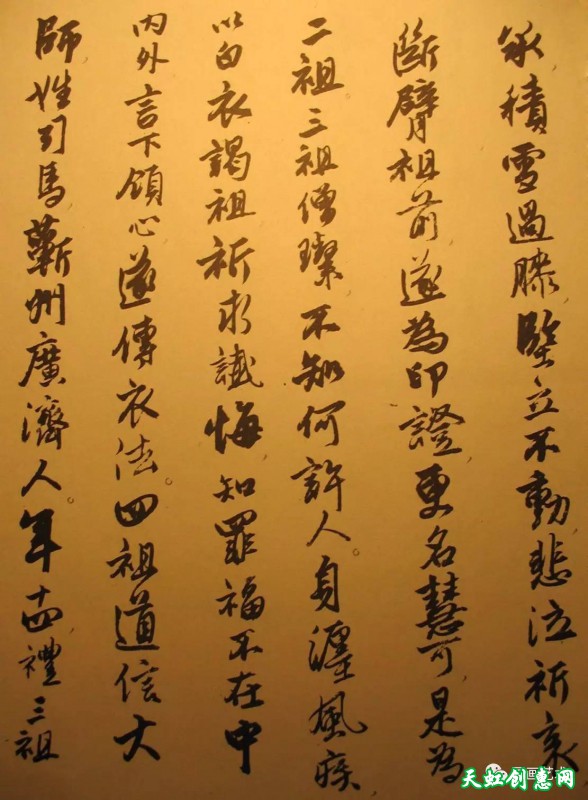 承積雪過膝堅立不動悲泣祈哀
斷臂祖前遂為印證更名慧可是為
二祖三祖僧璨不知何許人身纏風疾
以白衣謁祖祈求懺悔知罪福不在中
內外言下領心遂傳衣法四祖道信大
師姓司馬蘄州廣濟人年十四禮三祖
书画艺术
天虹创意网